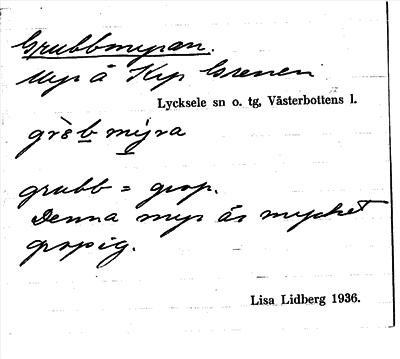 Grubbmyran.
Myr å Kyp Grenen
Lycksele sn o. tg, Västerbottens l.
grub myra
grubb = grop.
Denna myr är mycket
gropig.
Lisa Lidberg 1936.